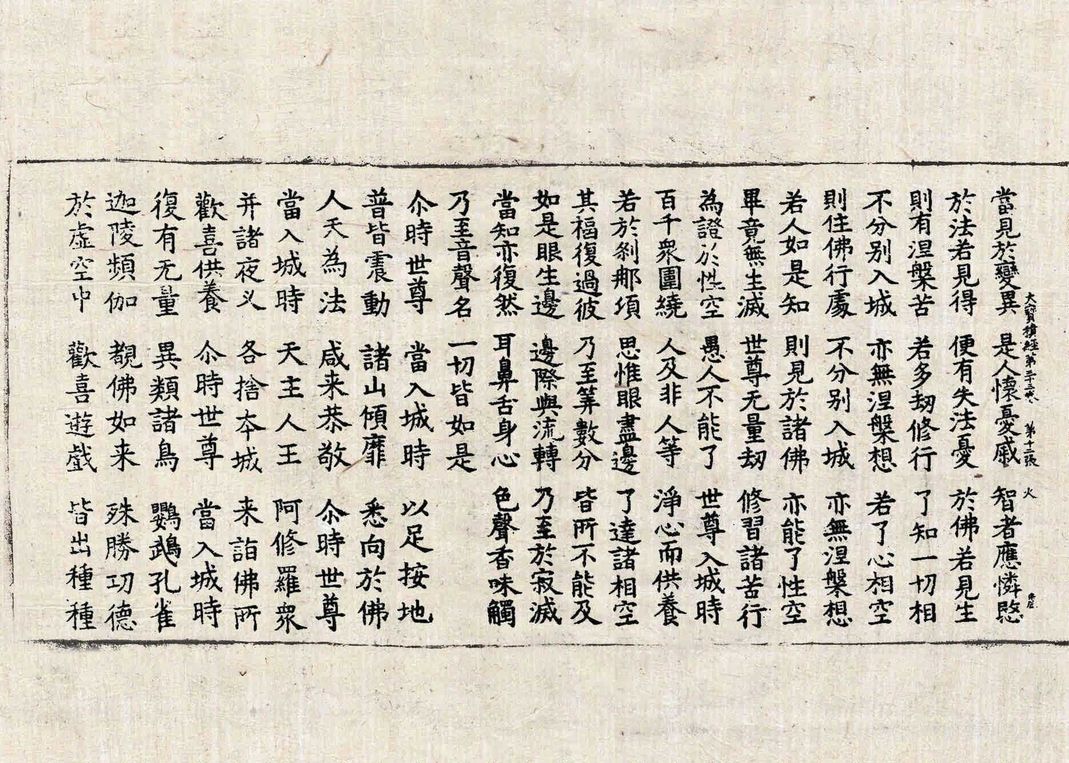 當見於變異 是人懷憂慼 智者應憐愍
大寶積經第三十五卷 第十二張 火
於法若見得 便有失法憂 於佛若見生
則有涅槃苦 若多劫修行 了知一切相
不分别入城 亦無涅槃想 若了心相空
則住佛行處 不分别入城 亦無涅槃想
若人如是知 則見於諸佛 亦能了性空
畢竟無生滅 世尊无量劫 修習諸苦行
為證於性空 愚人不能了 世尊入城時
百千衆圍繞 人及非人等 淨心而供養
若於刹那頃 思惟眼盡邊 了達諸相空
其福復過彼 乃至筭數分 皆所不能及
如是眼生邊 邊際與流轉 乃至於寂滅
當知亦復然 耳鼻舌身心 色聲香味觸
乃至音聲名 一切皆如是
尒時世尊 當入城時 以足按地
普皆震動 諸山傾靡 悉向於佛
人天為法 咸来恭敬 尒時世尊
當入城時 天主人王 阿修羅衆
并諸夜义 各捨夲城 来詣佛所
歡喜供養 尒時世尊 當入城時
復有无量 異類諸鳥 鸚鵡孔雀
迦陵頻伽 覩佛如来 殊勝功德
於虛空中 歡喜遊戲 皆出種種